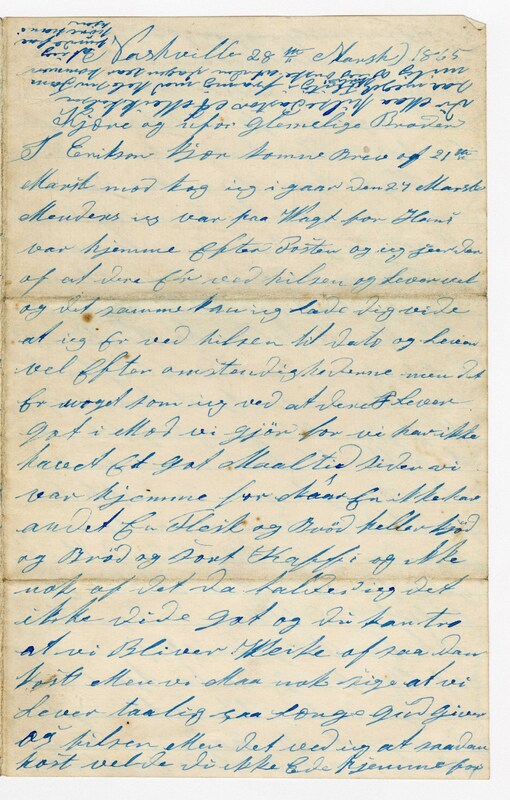 Nashville 28 de Marsk 1865
Kjære og ufor glemelige Broder
S Erikson kjær komne Brev af 21 de
Marsk mod tog ieg i gaar den 27 Marsk
Menders ieg var paa Wagt for Hans
var hjemme Efter Posten og ieg seer der
af at dere Er ved hilsen og Lever vel
og det samme kan ieg lade dig vide
at ieg Er ved hilsen til dato og Lever
vel Efter omstendighederne men det
Er noget som ieg ved at dere Lever
got i Mod vi gjör for vi har ikke
havet Et got Maaltid siden vi
var hjemme for Naar En ikke har
andet En Flesk og Bröd heller kjöd
og Bröd og sort Kaffi og ikke
nok af det da kaldes ieg det
ikke vide got og du kan tro
at vi Bliver Kleike af saa dan
kost Men vi Maa nok sige at vi
Lever taalig saa Længe Gud Giver
os hilsen Men det ved ieg at saadan
kost velde di ikke Ede hjemme for